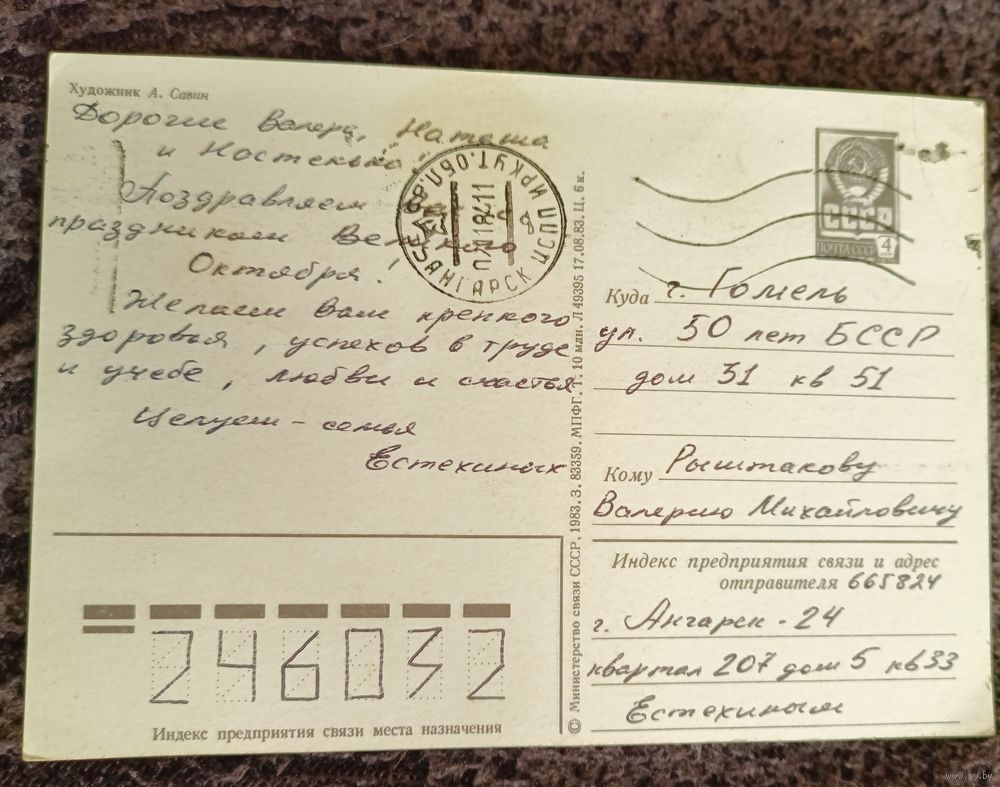 Художник А. Савин
Дорогие Валера, Наташа
и Настенька!
Поздравляем с
праздником Великого
Октября!
Желаем Вам крепкого
здоровья, успехов в труде
и учебе, любви и счастья
Целуем - семья
Естехиных
АНГАРСК ИРКУТ.ОБЛ.
СССР
ПОЧТА СССР 4
Куда г. Гомель
ул. 50 лет БССР
дом 31 кв 51
Кому Рыштакову
Валерию Михайловичу
Индекс предприятия связи и адрес
отправителя 665824
г. Ангарск - 24
квартал 207 дом 5 кв 33
Естехиным
© Министерство связи СССР, 1983. З. 83359. МПФГ. Т. 10 млн. Л 49395 17.08.83. Ц. 6 к.
246032
Индекс предприятия связи места назначения
www.ay.by